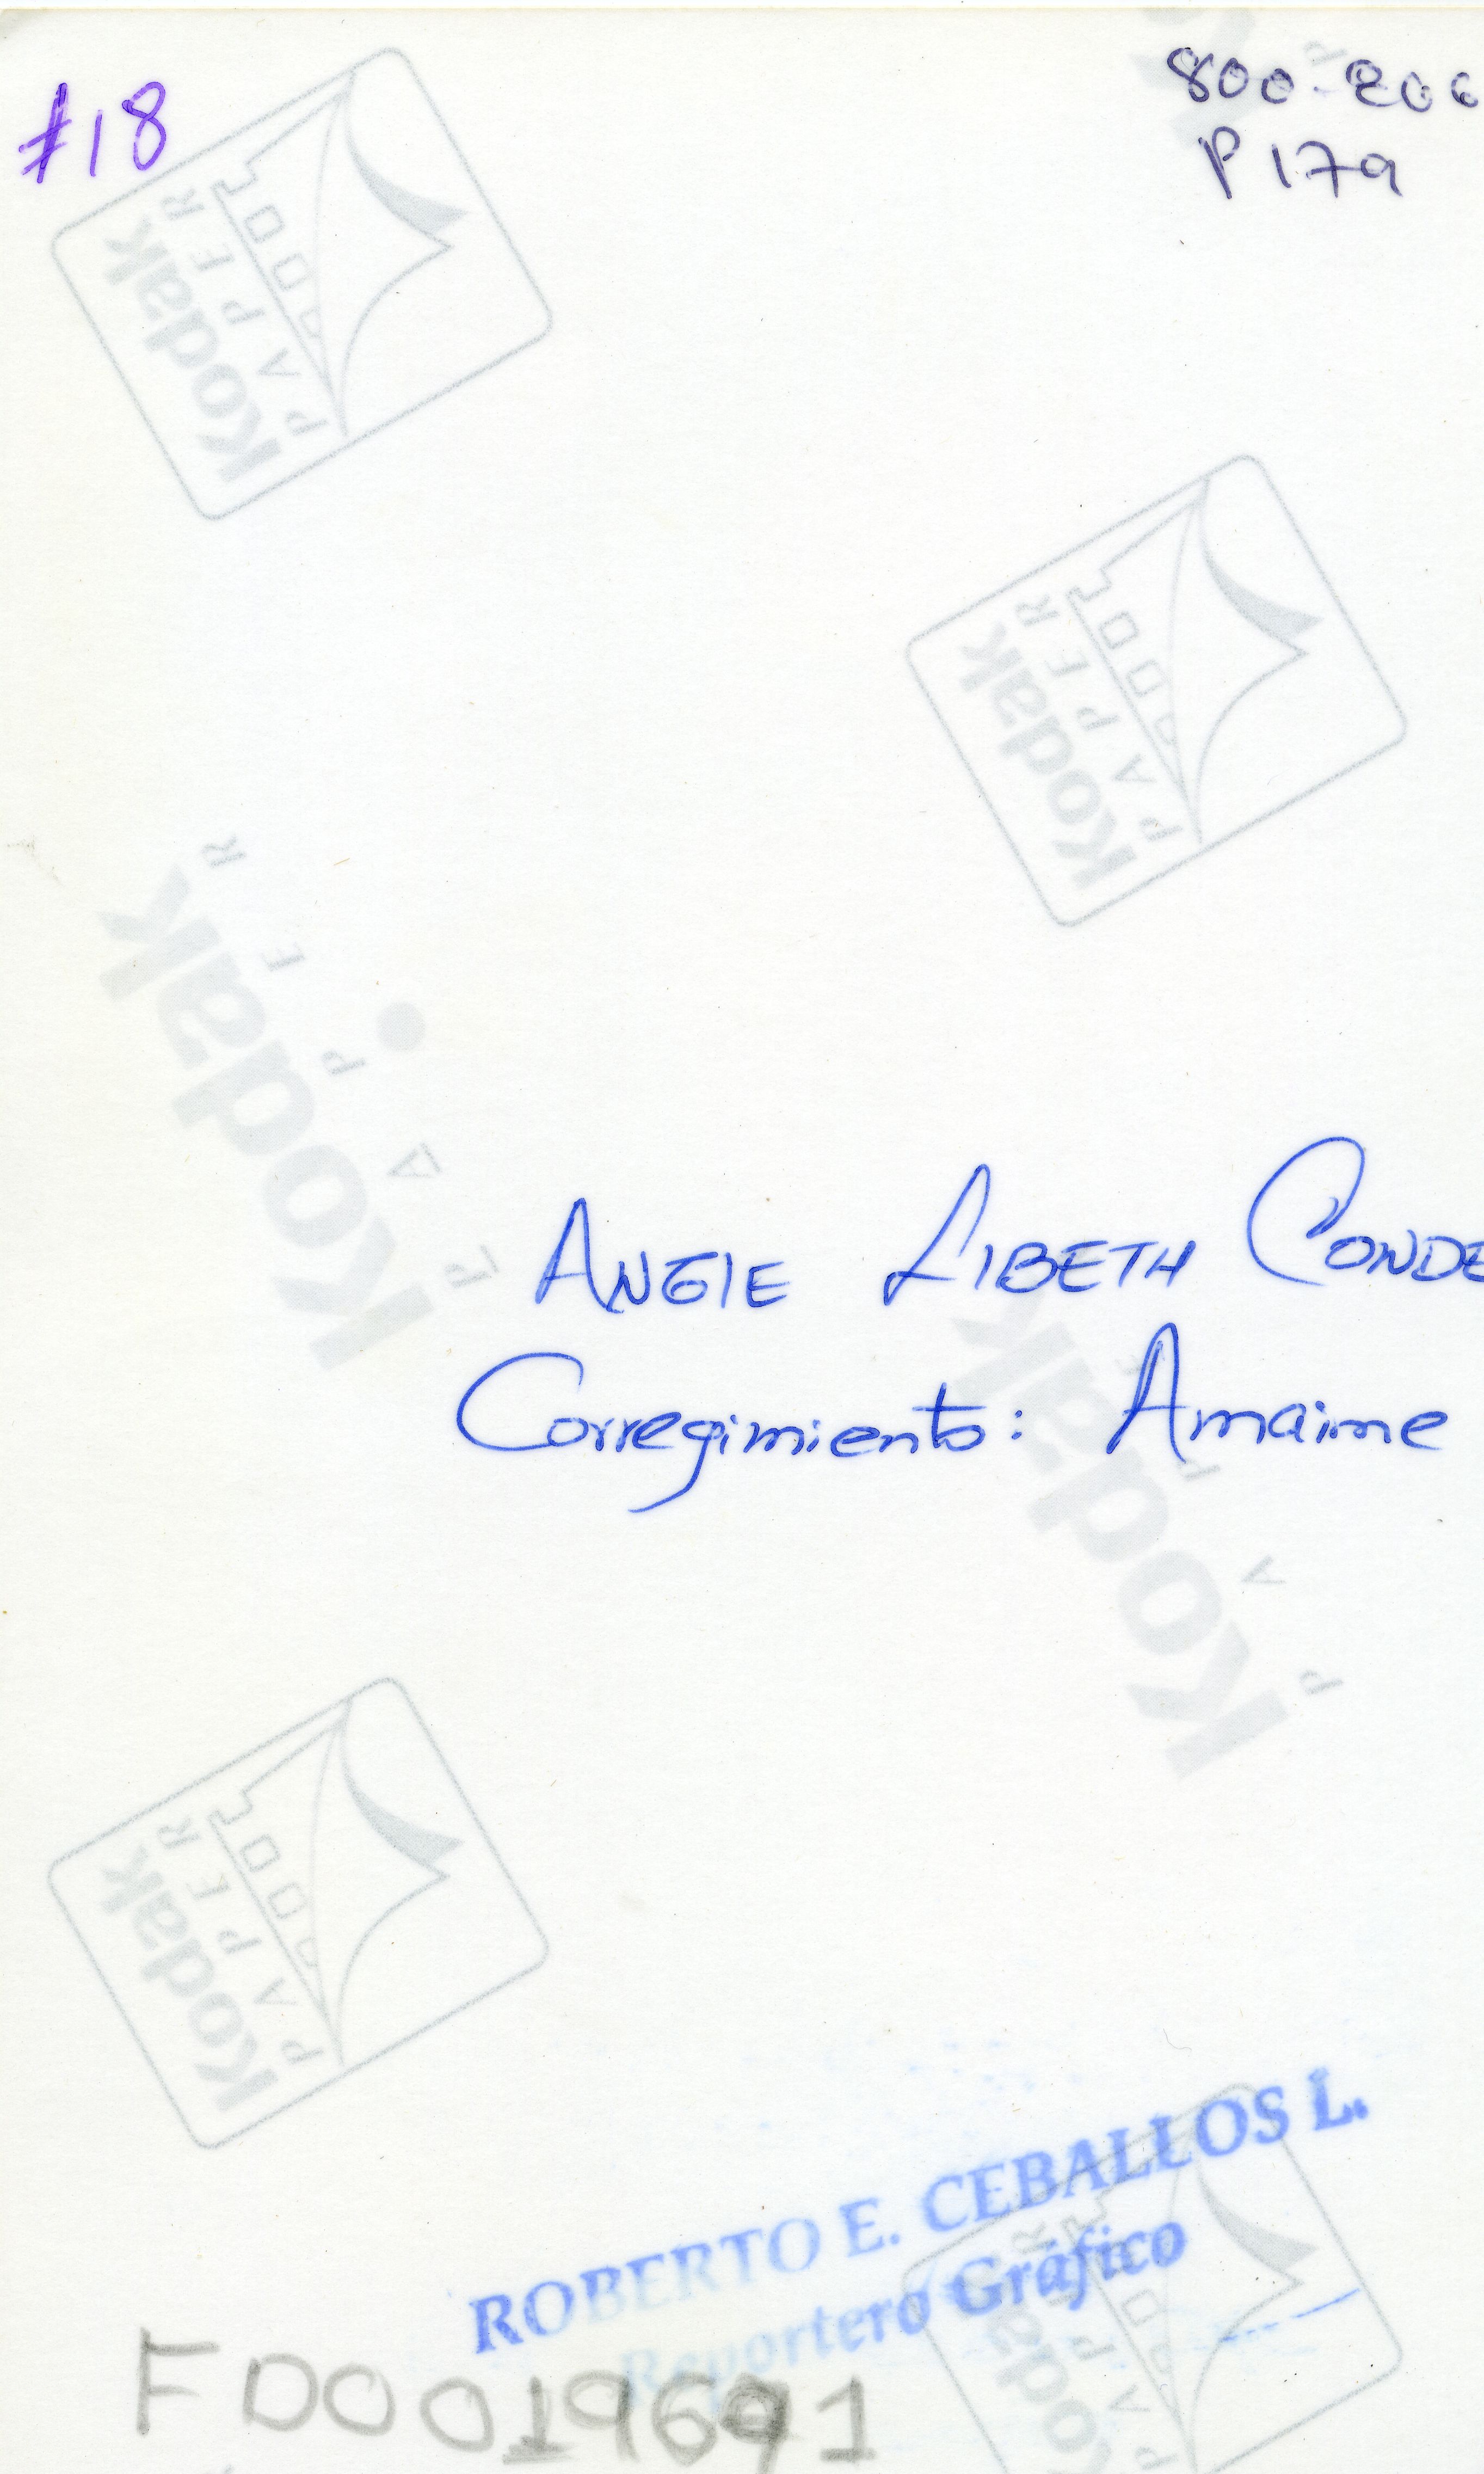 #18
800-206
P 179
Kodak
PAPER
Kodak
PAPER
Kodak
PAPER
ANGIE LIBETH CONDE
Corregimiento: Amaime
Kodak
PAP
Kodak
PAPER
ROBERTO E. CEBALLOS L.
Reportero Gráfico
Kodak
PAPER
FD0019691